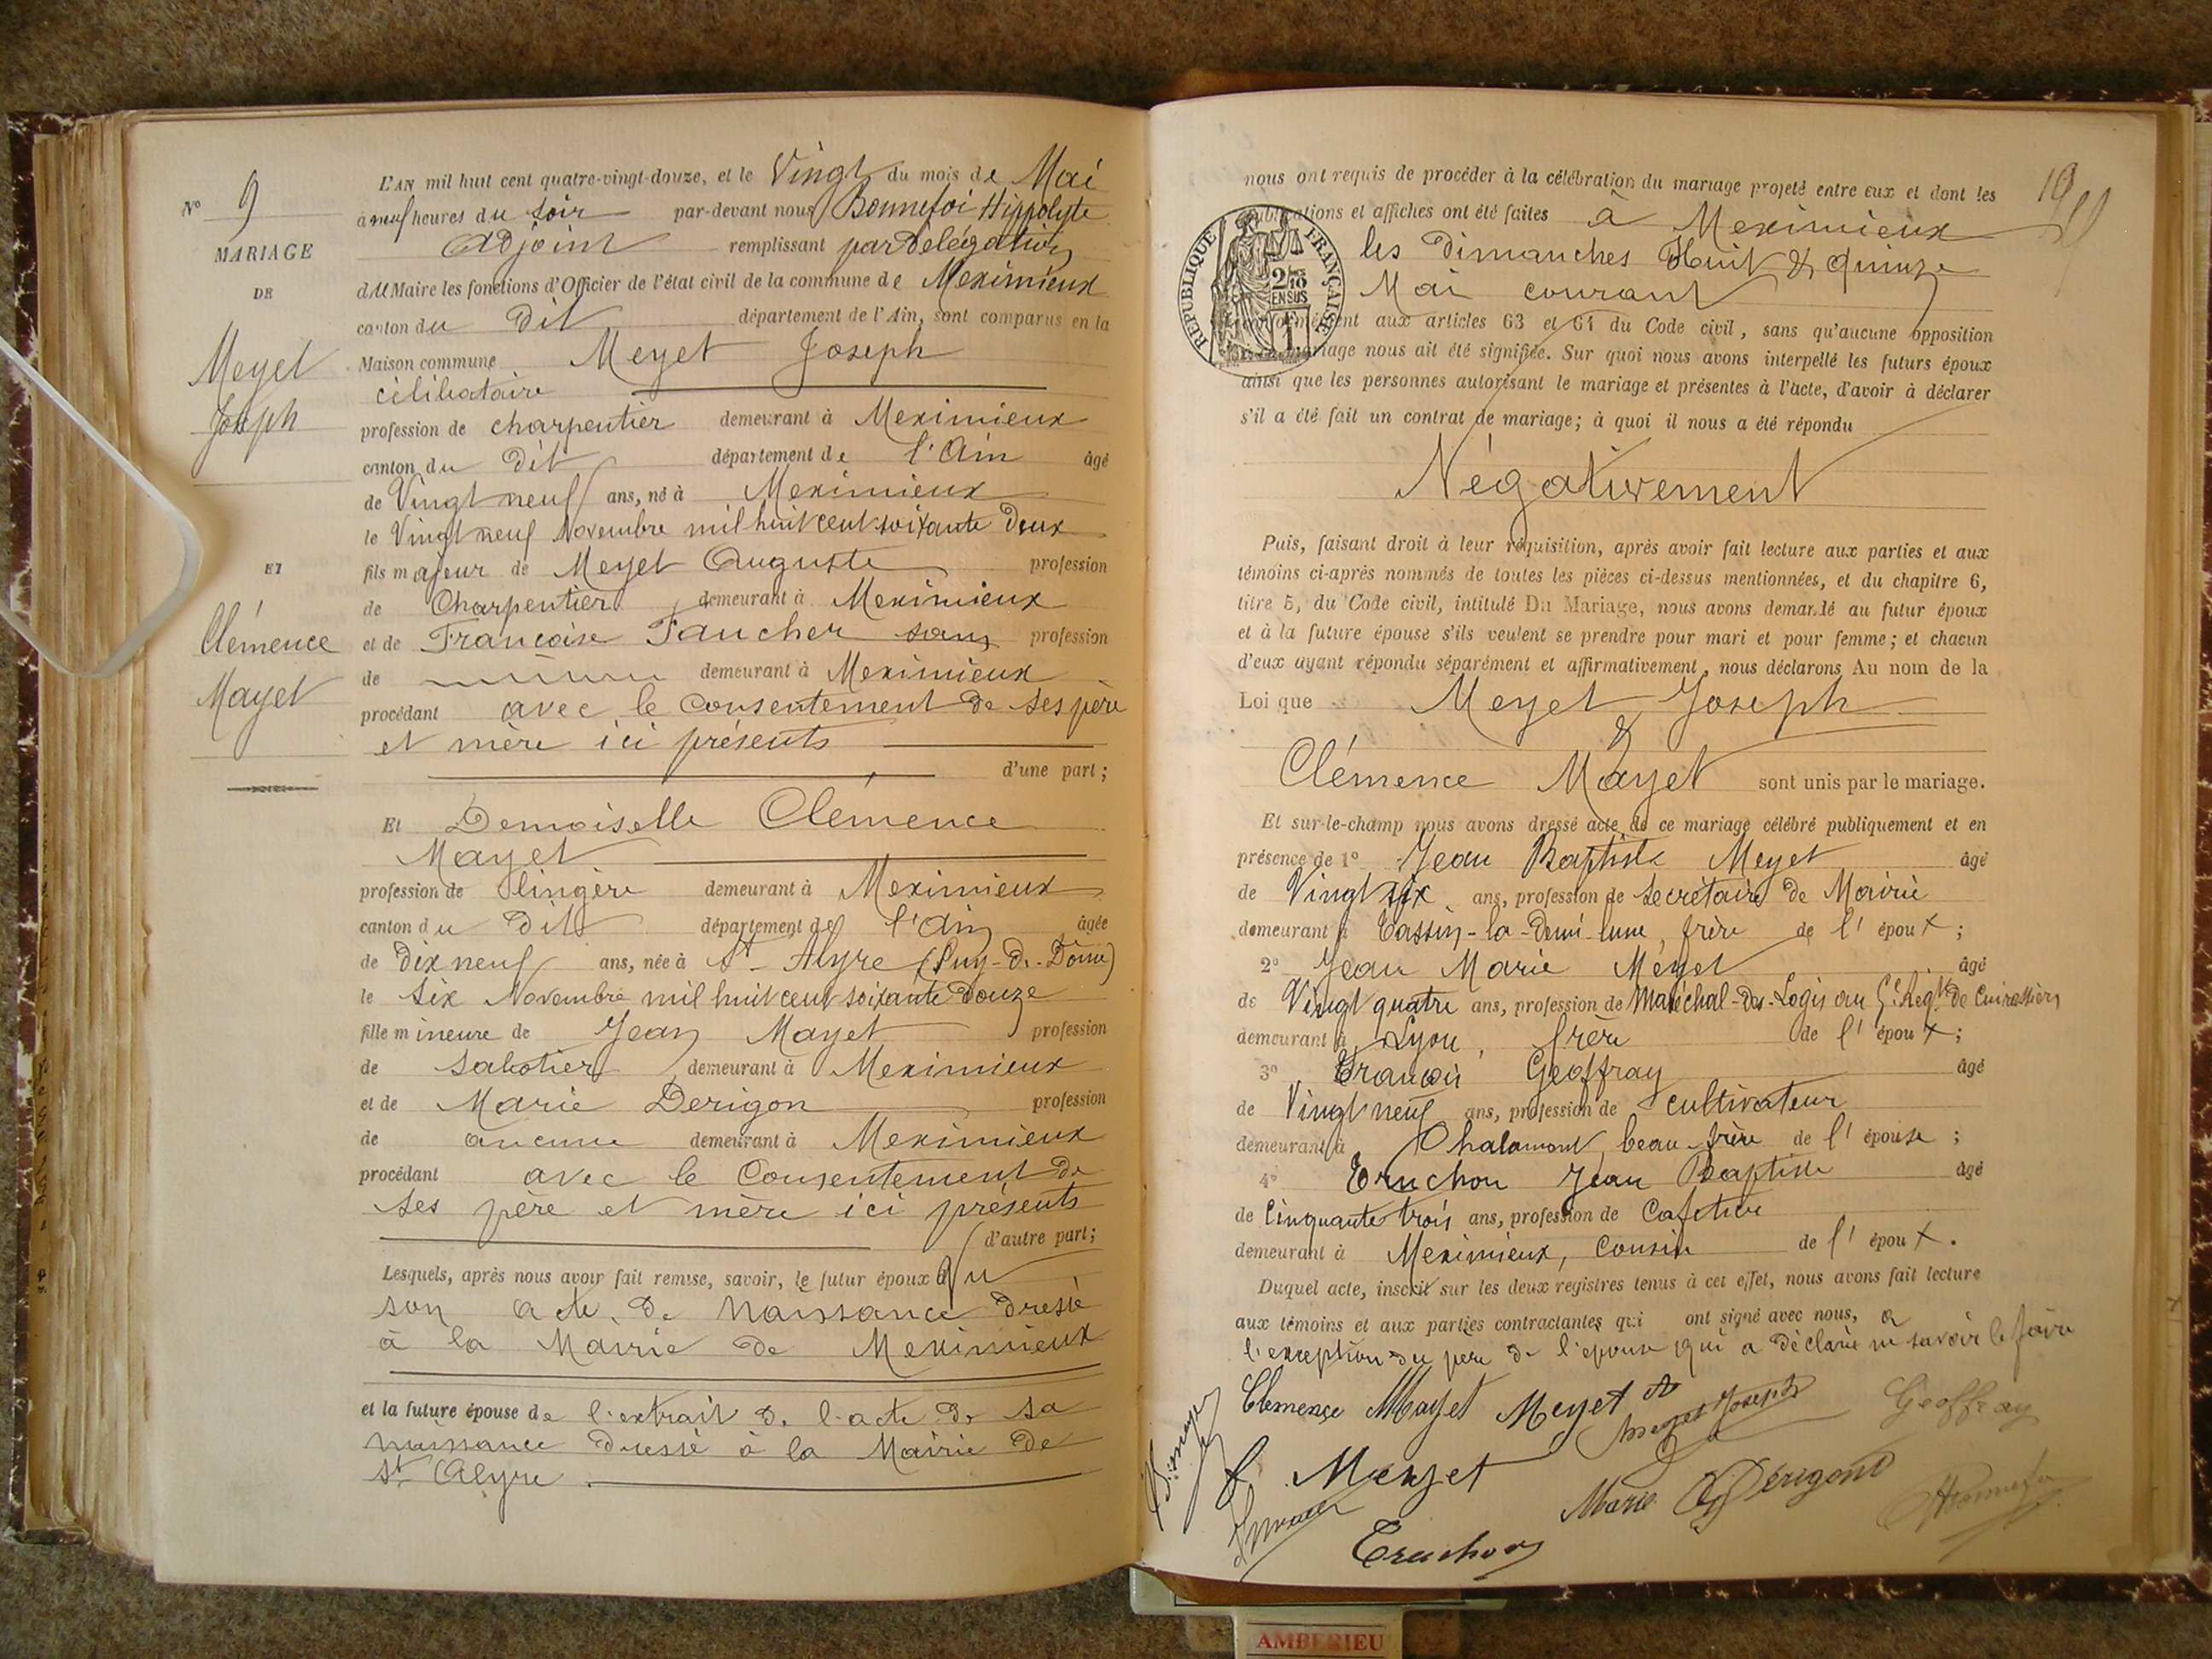 N° 9
MARIAGE
DE
Meyet
Joseph
ET
Clémence
Mayet
L'AN mil huit cent quatre-vingt-douze, et le Vingt du mois de Mai
à neuf heures du soir par-devant nous Bonnefoi Hippolyte
Adjoint remplissant par délégation
du Maire les fonctions d'Officier de l'état civil de la commune de Meximieux
canton du Dit département de l'Ain, sont comparus en la
Maison commune Meyet Joseph
célibataire
profession de charpentier demeurant à Meximieux
canton du Dit département de l'Ain âgé
de Vingt neuf ans, né à Meximieux
le Vingt neuf Novembre mil huit cent soixante deux
fils majeur de Meyet Auguste profession
de Charpentier demeurant à Meximieux
et de Francoise Faucher sans profession
de demeurant à Meximieux
procédant avec le consentement de ses père
et mère ici présents
d'une part;
Et Demoiselle Clémence
Mayet
profession de lingère demeurant à Meximieux
canton du Dit département de l'Ain âgée
de Dix neuf ans, née à St Alyre (Puy-de-Dôme)
le six Novembre mil huit cent soixante douze
fille mineure de Jean Mayet profession
de sabotier demeurant à Meximieux
et de Marie Derigon profession
de aucune demeurant à Meximieux
procédant avec le Consentement de
ses père et mère ici présents
d'autre part;
Lesquels, après nous avoir fait remise, savoir, le futur époux
son acte de naissance dressé
à la Mairie de Meximieux
et la future épouse de l'extrait de l'acte de sa
naissance dressé à la Mairie de
St Alyre.
19
nous ont requis de procéder à la célébration du mariage projeté entre eux et dont les
publications et affiches ont été faites à Meximieux
les dimanches Huit & quinze
Mai courant
conformément aux articles 63 et 64 du Code civil, sans qu'aucune opposition
mariage nous ait été signifiée. Sur quoi nous avons interpellé les futurs époux
ainsi que les personnes autorisant le mariage et présentes à l'acte, d'avoir à déclarer
s'il a été fait un contrat de mariage; à quoi il nous a été répondu
RÉPUBLIQUE FRANÇAISE
2/10
EN SUS
1
Négativement
Puis, faisant droit à leur réquisition, après avoir fait lecture aux parties et aux
témoins ci-après nommés de toutes les pièces ci-dessus mentionnées, et du chapitre 6,
titre 5, du Code civil, intitulé Du Mariage, nous avons demandé au futur époux
et à la future épouse s'ils veulent se prendre pour mari et pour femme; et chacun
d'eux ayant répondu séparément et affirmativement, nous déclarons Au nom de la
Loi que Meyet Joseph
&
Clémence Mayet sont unis par le mariage.
Et sur-le-champ nous avons dressé acte de ce mariage célébré publiquement et en
présence de 1° Jean Baptiste Meyet âgé
de Vingt six ans, profession de secrétaire de Mairie
demeurant à Tassin-la-Demi-lune, frère de l'époux;
2° Jean Marie Meyet âgé
de Vingt quatre ans, profession de Maréchal-des-Logis au Régt de Cuirassiers
demeurant à Lyon, frère de l'époux;
3° François Geoffray âgé
de Vingt neuf ans, profession de cultivateur
demeurant à Chalamont beau-frère de l'épouse;
4° Truchon Jean Baptiste âgé
de Cinquante trois ans, profession de Cafetier
demeurant à Meximieux, cousin de l'époux.
Duquel acte, inscrit sur les deux registres tenus à cet effet, nous avons fait lecture
aux témoins et aux parties contractantes qui ont signé avec nous, à
l'exception du père de l'épouse qui a déclaré ne savoir le faire
Clémence Mayet Meyet Meyet Joseph Geoffray
Meyet
Marie Dérigond
Truchon
AMBERIEU